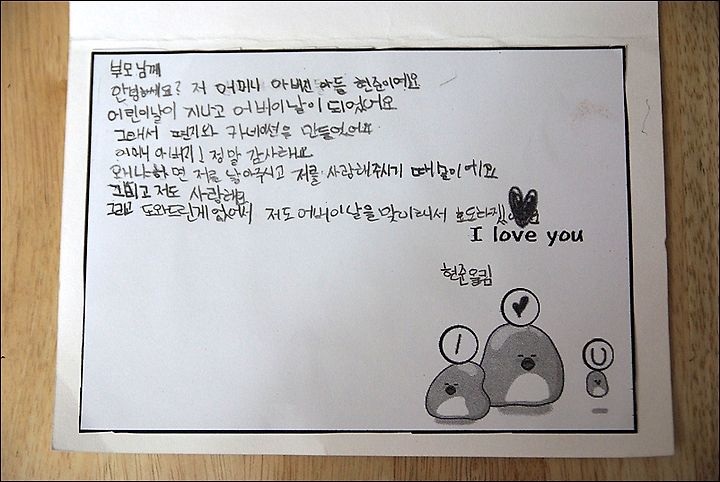 부모님께
안녕하세요? 저 어머니 아버지 아들 현준이에요
어린이날이 지나고 어버이날이 되었어요
그래서 편지와 카네이션을 만들었어요
어머니 아버지! 정말 감사해요
왜냐하면 저를 낳아주시고 저를 사랑해주시기 때문이에요
그리고 저도 사랑해요
그리고 도와드린게 없어서 저도 어버이날을 맞이해서
I love you
현준올림
I
U